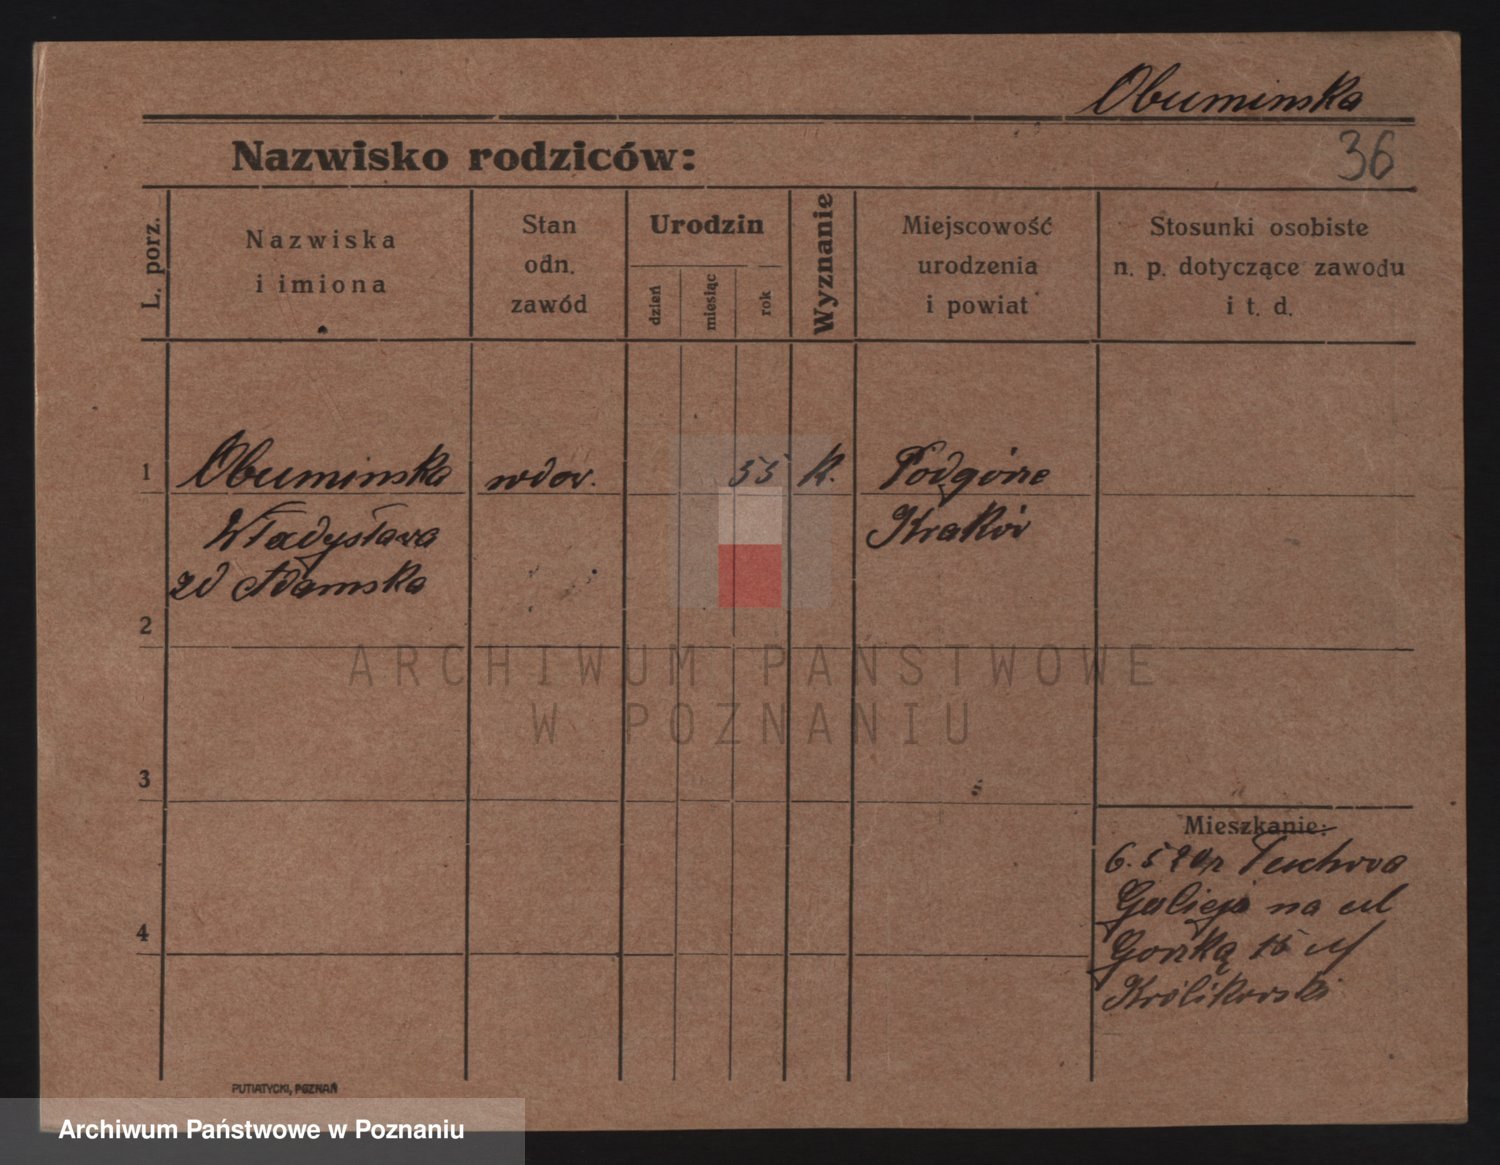 Obuminska
36
Nazwisko rodziców:
L. porz.
Nazwiska
i imiona
Stan
odn.
zawód
Urodzin
dzień
miesiąc
rok
Wyznanie
Miejscowość
urodzenia
i powiat
Stosunki osobiste
n. p. dotyczące zawodu
i t. d.
1 Obuminska wdov. 55 K. Podgórze
Władysława Kraków
zd Adamska
2
ARCHIWUM PAŃSTWOWE
W POZNANIU
3
Mieszkanie:
6. 5 20 Tuchova
Galicja na ul
4
Gorzką 15
Królikowski
PUTIATYCKI, POZNAŃ
Archiwum Państwowe w Poznaniu